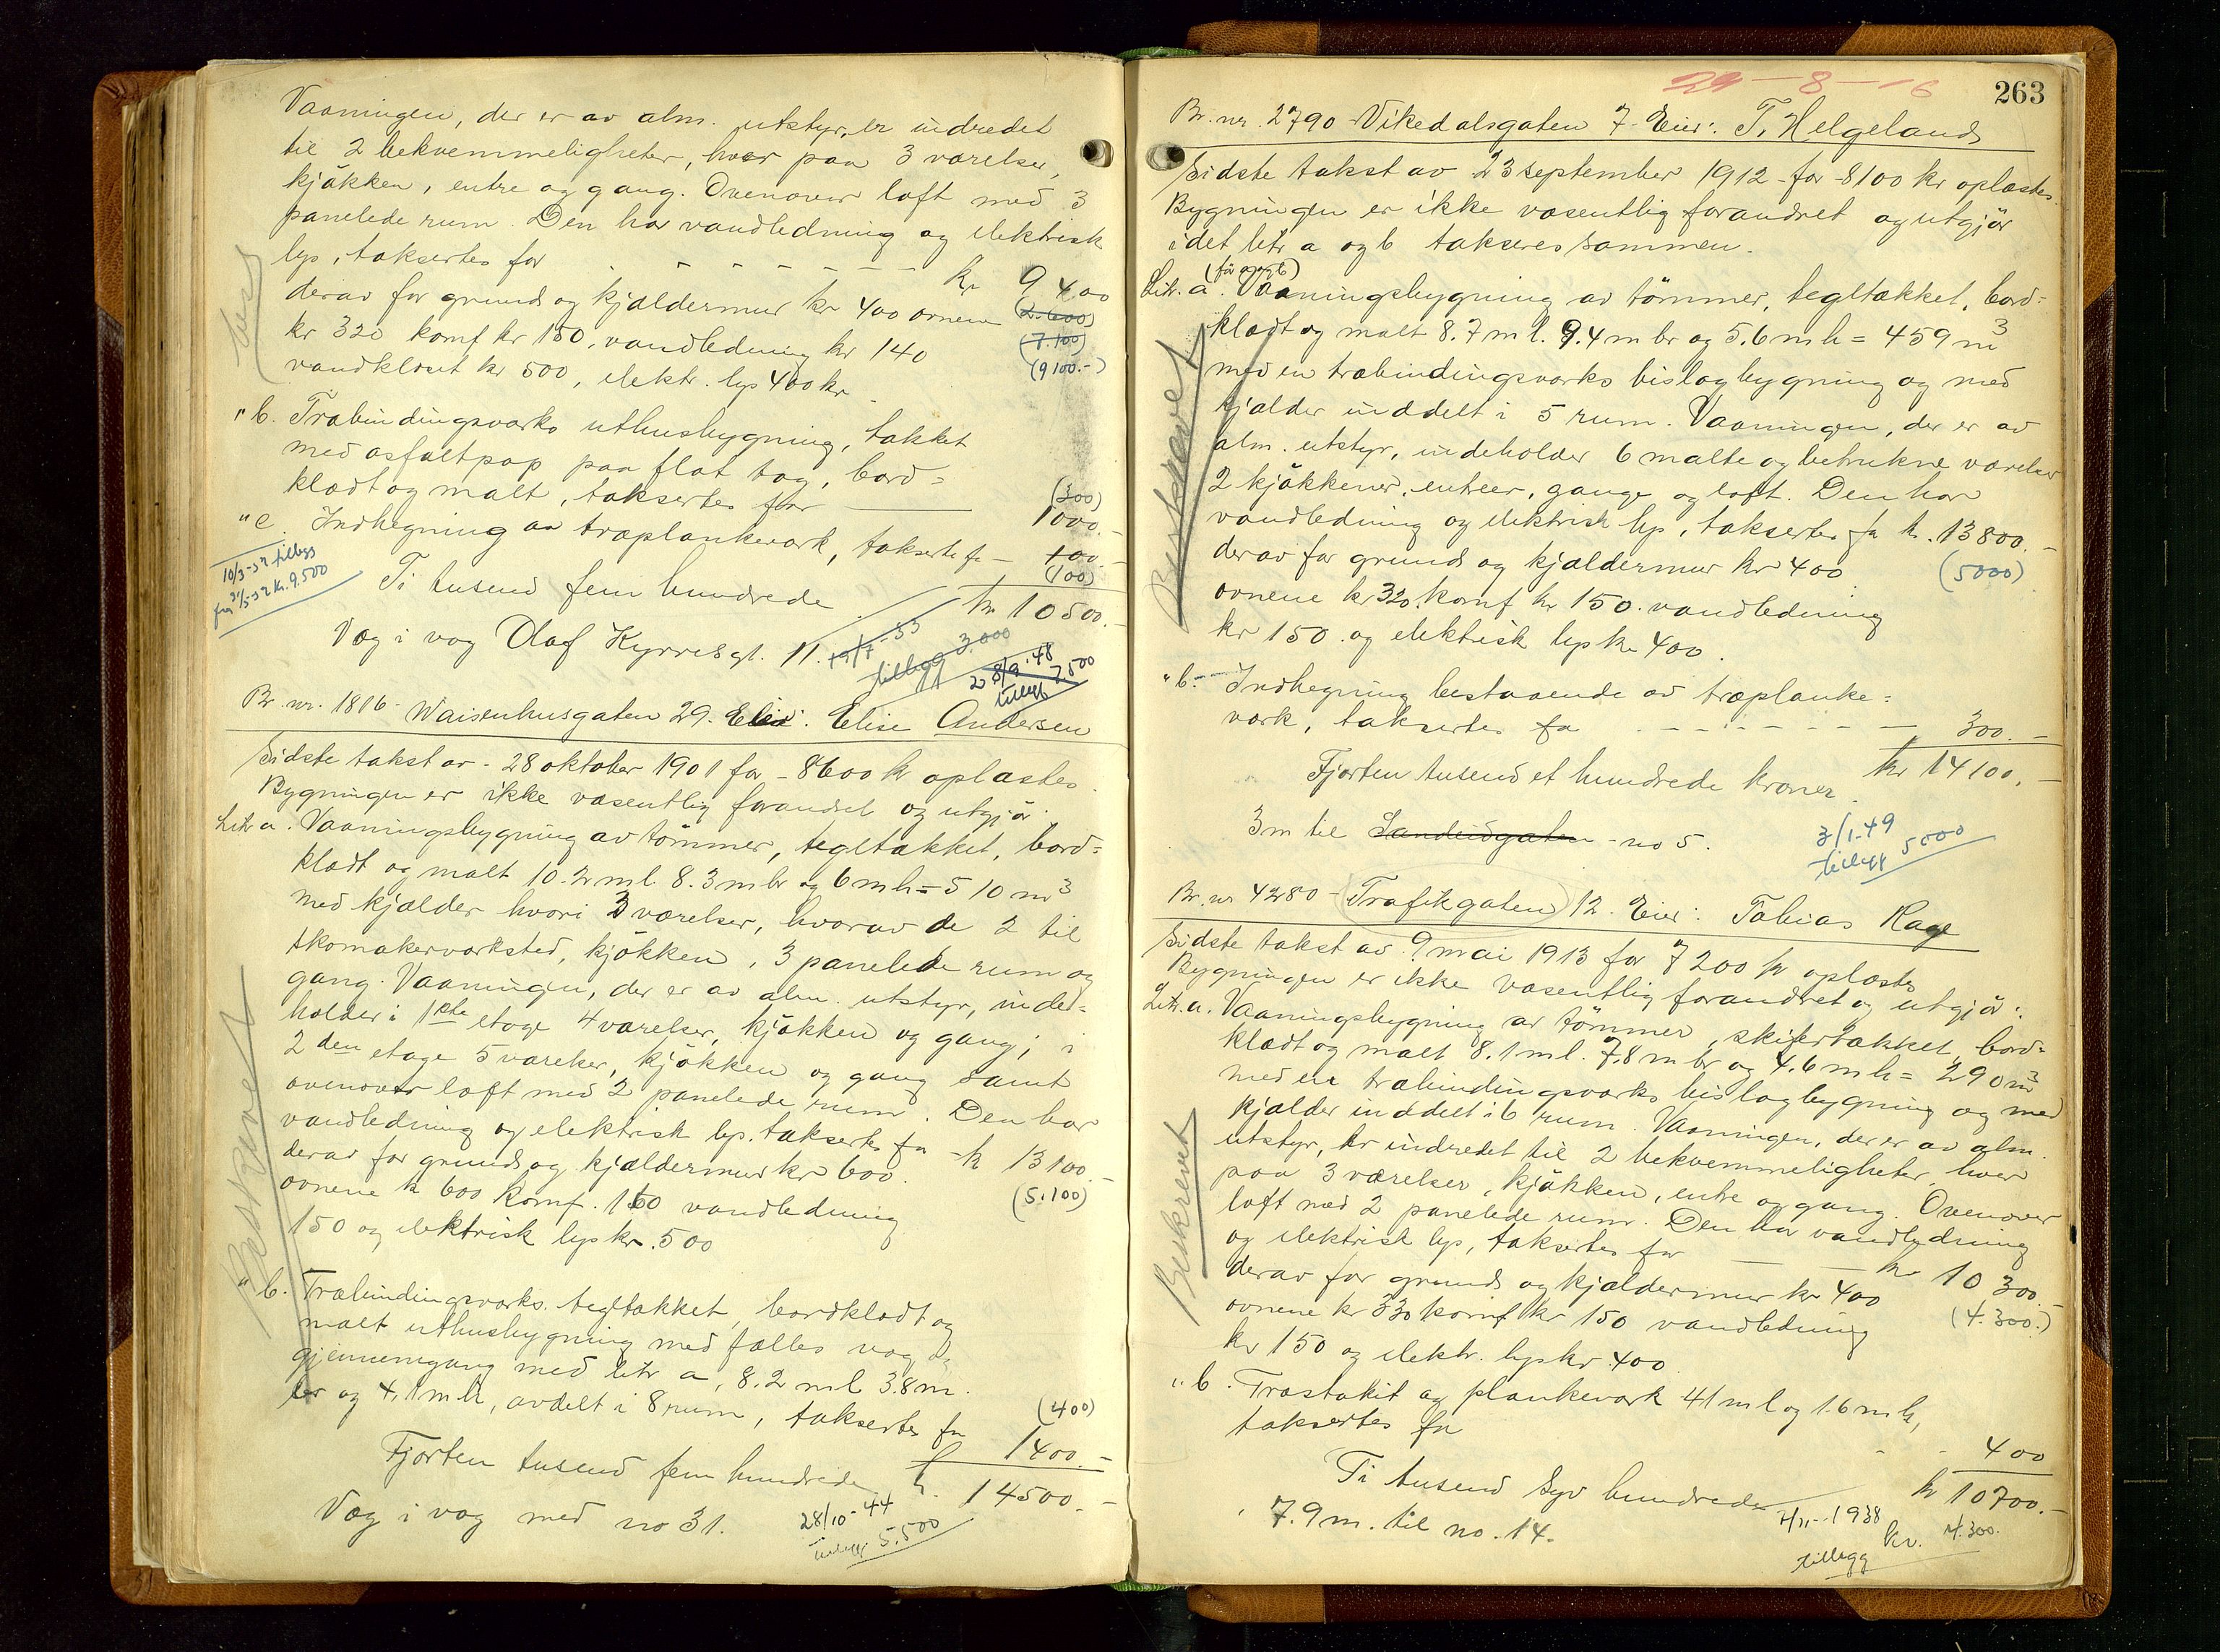 Vaaningen, der er av alm. utstyr, er indredet
til 2 bekvemmeligheter, hver paa 3 værelser,
kjökken, entre og gang. Ovenover loft med 3
panelede rum. Den har vandledning og elektrisk
lys, taksertes for - - - - - - - kr 9400
derav for grund og kjældermur kr 400 ovnene (2.600)
kr 320 komf kr 150, vandledning kr 140 (7.100)
vandkloset kr 500, elektr. lys 400 kr. (9100.-)
besk
" b. Træbindingsværks uthusbygning, takket
med asfaltpap paa flat tag, bord=
klædt og malt, taksertes for (300) 1000.-
" c. Indhegning av træplankeværk, taksertes fr — 100.-
(100)
10/3-52 tillegg
fra 31/5-52 kr. 9.500
Ti tusend fem hundrede kr 10500.-
Væg i væg Olaf Kyrresgt. 11.
19/7-33
tillegg 3.000
28/9-48
tillegg 7500
Br. nr. 1816 - Waisenhusgaten 29. Eier: Elise Andersen
Sidste takst av - 28 oktober 1901 for - 8600 kr oplæstes.
Bygningen er ikke væsentlig forandret og utgjör:
Litr a. Vaaningsbygning av tömmer, tegltækket, bord=
klædt og malt 10.2 m l. 8.3 m br og 6 m h = 510 m³
med kjælder hvori 3 værelser, hvorav de 2 til
skomakerværksted, kjökken, 3 panelede rum og
gang. Vaaningen, der er av alm. utstyr, inde=
holder i 1ste etage 4 værelser, kjökken og gang; i
2den etage 5 værelser, kjökken og gang samt
ovenover loft med 2 panelede rum. Den har
vandledning og elektrisk lys. taksertes for - kr 13100.-
derav for grund og kjældermur kr 600. (5.100)
ovnene kr 600 komf. 150 vandledning
150 og elektrisk lys kr. 500
Beskrevet
" b. Træbindingsværks. tegltækket, bordklædt og
malt uthusbygning med fælles væg og
gjennemgang med litr a, 8.2 m l 3.8 m.
br og 4.1 m h, avdelt i 8 rum, taksertes for (400) 1400.-
Fjorten tusend fem hundrede kr. 14500.-
Væg i væg med no 31.
28/10-44
tillegg 5.500
29-8-16
263
Br. nr. 2790 Vikedalsgaten 7. Eier: T. Helgeland
Sidste takst av 23 september 1912 - for 8100 kr oplæstes.
Bygningen er ikke væsentlig forandret og utgjör
idet litr a og b takseres sammen.
(för a og b)
Litr. a. Vaaningsbygning av tömmer, tegltækket, bord=
klædt og malt 8.7 m l. 9.4 m br og 5.6 m h = 459 m³
med en træbindingsværks bislagbygning og med
kjælder inddelt i 5 rum. Vaaningen, der er av
alm. utstyr, indeholder 6 malte og betrukne værelser
2 kjökkener, entreer, gange og loft. Den har
vandledning og elektrisk lys, taksertes for kr. 13800.-
derav for grund og kjældermur kr 400 (5000)
ovnene kr 320. komf kr 150. vandledning
kr 150. og elektrisk lys kr 400.
Beskrevet
" b. Indhegning bestaaende av træplanke=
værk, taksertes for - - - - - - 300.-
Fjorten tusend et hundrede kroner. kr 14100.-
3 m til Sandeidgaten - no 5.
3/1-49
tillegg 5000
Br. nr 4280 - Trafikgaten 12. Eier: Tobias Rage
Sidste takst av 9 mai 1913 for 7200 kr oplæstes
Bygningen er ikke væsentlig forandret og utgjör:
Litr. a. Vaaningsbygning av tömmer, skifertækket, bord=
klædt og malt 8.1 m l. 7.8 m br og 4.6 m h = 290 m³
med en træbindingsværks bislagbygning og med
kjælder inddelt i 6 rum. Vaaningen, der er av alm.
utstyr, er indredet til 2 bekvemmeligheter, hver
paa 3 værelser, kjökken, entre og gang. Ovenover
loft med 2 panelede rum. Den har vandledning
og elektrisk lys, taksertes for — — kr 10300.-
derav for grund og kjældermur kr 400 (4.300.)
ovnene kr 330 komf kr 150 vandledning
kr 150 og elektr. lys kr 400.
Beskrevet
" b. Træstakit og plankeværk 41 m l og 1.6 m h,
taksertes for - - 400
Ti tusend syv hundrede kr 10700.-
7.9 m. til no. 14.
4/11-1938
tillegg kr. 4.300.